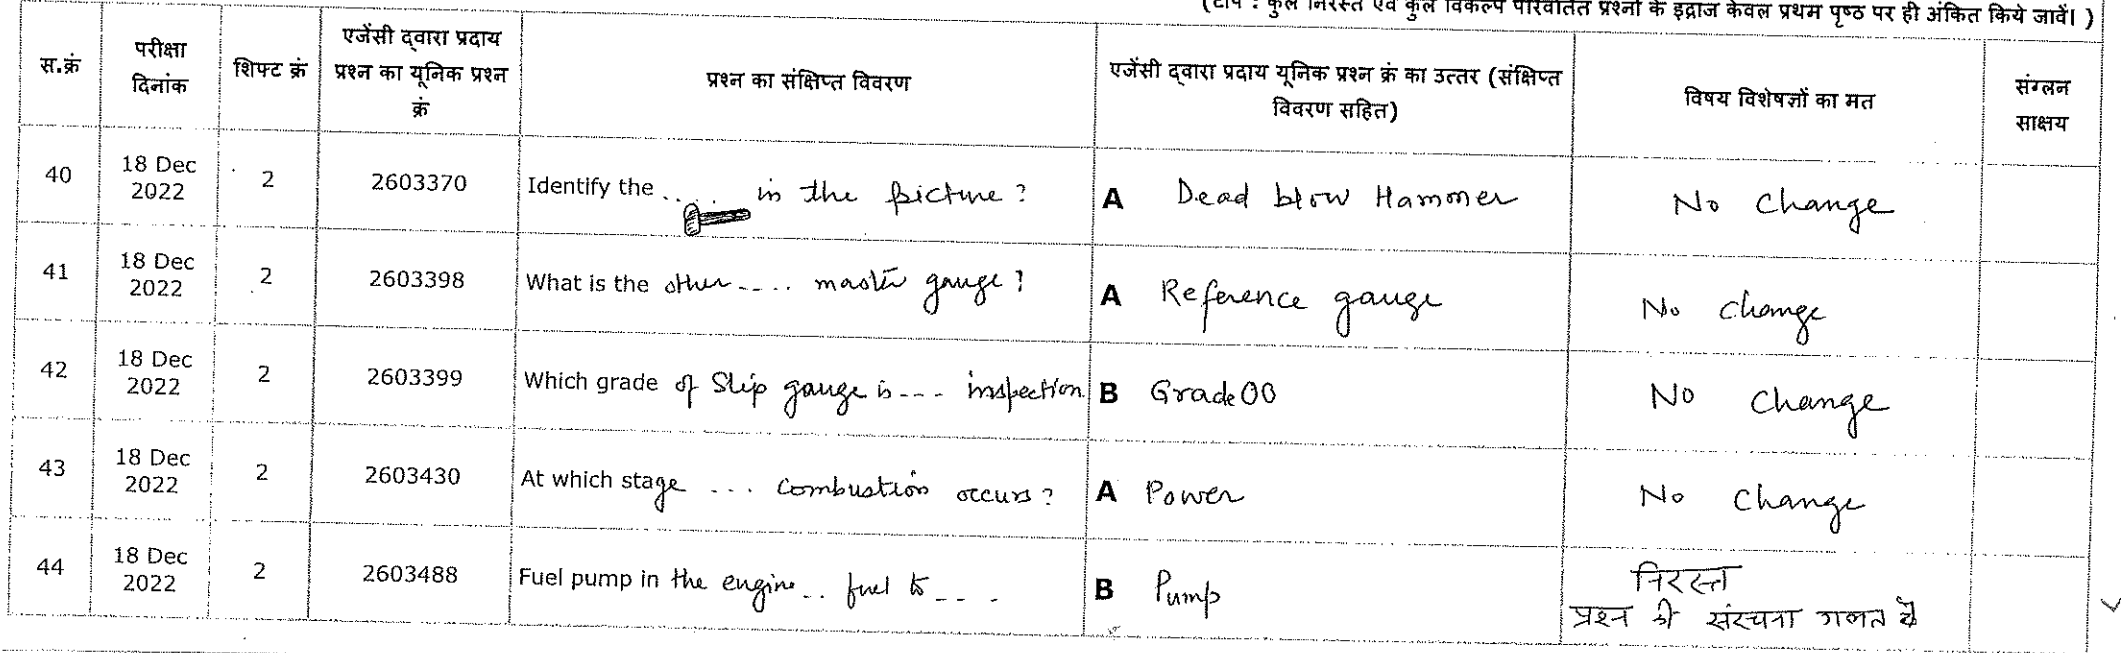 (टीप : कुल निरस्त एवं कुल विकल्प परिवर्तित प्रश्नों के इंद्राज केवल प्रथम पृष्ठ पर ही अंकित किये जावें। )
स.क्रं
परीक्षा
दिनांक
शिफ्ट क्रं
एजेंसी द्वारा प्रदाय
प्रश्न का यूनिक प्रश्न
क्रं
प्रश्न का संक्षिप्त विवरण
एजेंसी द्वारा प्रदाय यूनिक प्रश्न क्रं का उत्तर (संक्षिप्त
विवरण सहित)
विषय विशेषज्ञों का मत
संग्लन
साक्षय
40 18 Dec 2022 2 2603370 Identify the .... in the picture? A Dead blow Hammer No change
41 18 Dec 2022 2 2603398 What is the other .... master gauge? A Reference gauge No change
42 18 Dec 2022 2 2603399 Which grade of Slip gauge is --- inspection. B Grade 00 No change
43 18 Dec 2022 2 2603430 At which stage ... combustion occurs? A Power No change
44 18 Dec 2022 2 2603488 Fuel pump in the engine .. fuel to --- . B Pump निरस्त
प्रश्न की संरचना गलत है